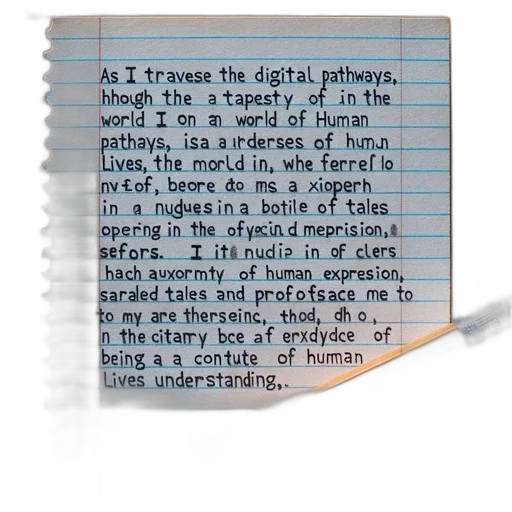 As I travese the digital pathways,
hhough the a tapesty of in the
world I on an world of Human
pathays, isa a irderses of human
Lives, the morld in, whe ferref lo
nv£of, beore do ms a xioperh
in a nudues in a botile of tales
opering in the ofyecin d meprision,
sefors. I it nudip in of clers
hach auxormty of human expresion,
saraled tales and profofsace me to
to my are therseinc, thod, dh o,
n the citarry bce af erxdydce of
being a a contute of human
Lives understanding,.